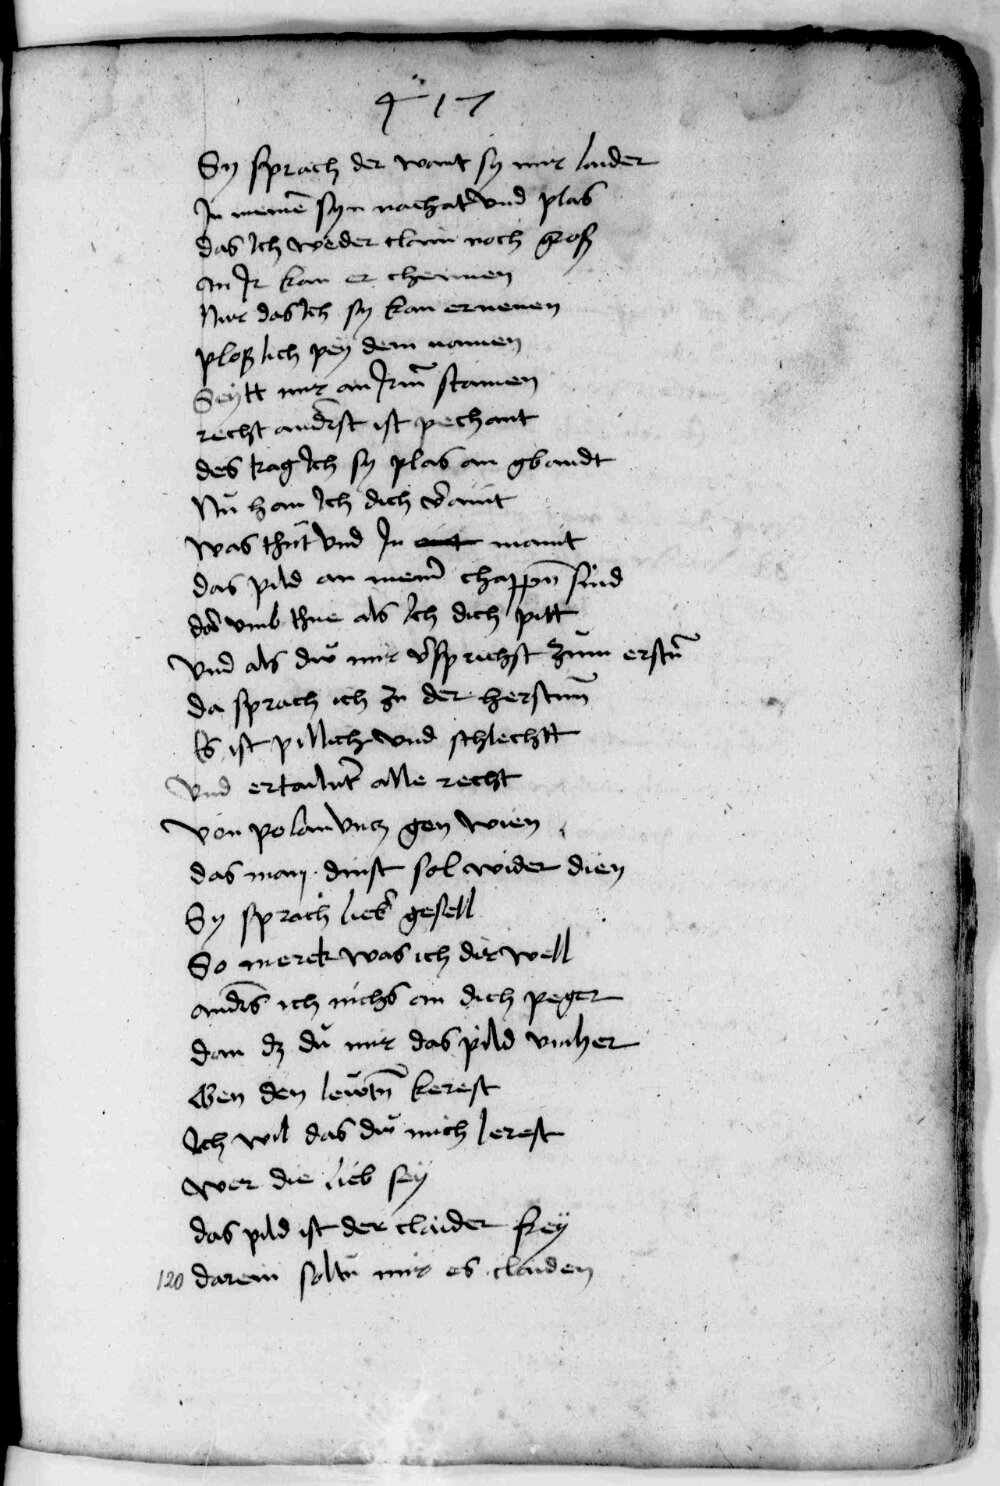 417
Sy sprach der want sy mir laider
In meinē syn nachat vnd plas
das Ich weder clain noch groß
an Ir kan er chennen
Nur das Ich sy kan ernenen
ploßlich pey dem namen
Seytt mir an Irm̄ stamen
recht and̄rst ist pechant
des trag Ich sy plas an gbandt
Nu han Ich dich v̄maint
was thut vnd In maint
das pild an mein̄ chappn̄ sind
dar vmb thue als Ich dich pitt
vnd als du mir v̄sprichst zum erstn̄
da sprach ich zu der herstnn̄
Es ist pillich vnd schlechtt
vnd ertailnt alle recht
von polan vncz gen wien
das man dinst sol wider dien
Sy sprach lieb̄ gesell
So merck was ich dir well
and̄s ich nichs an dich peger
dan dz du mir das pild vmher
Gen den lewtn̄ kerest
Ich wil das du mich lerest
wer die lieb sey
das pild ist der claider frey
120 darein soltu mir es claiden